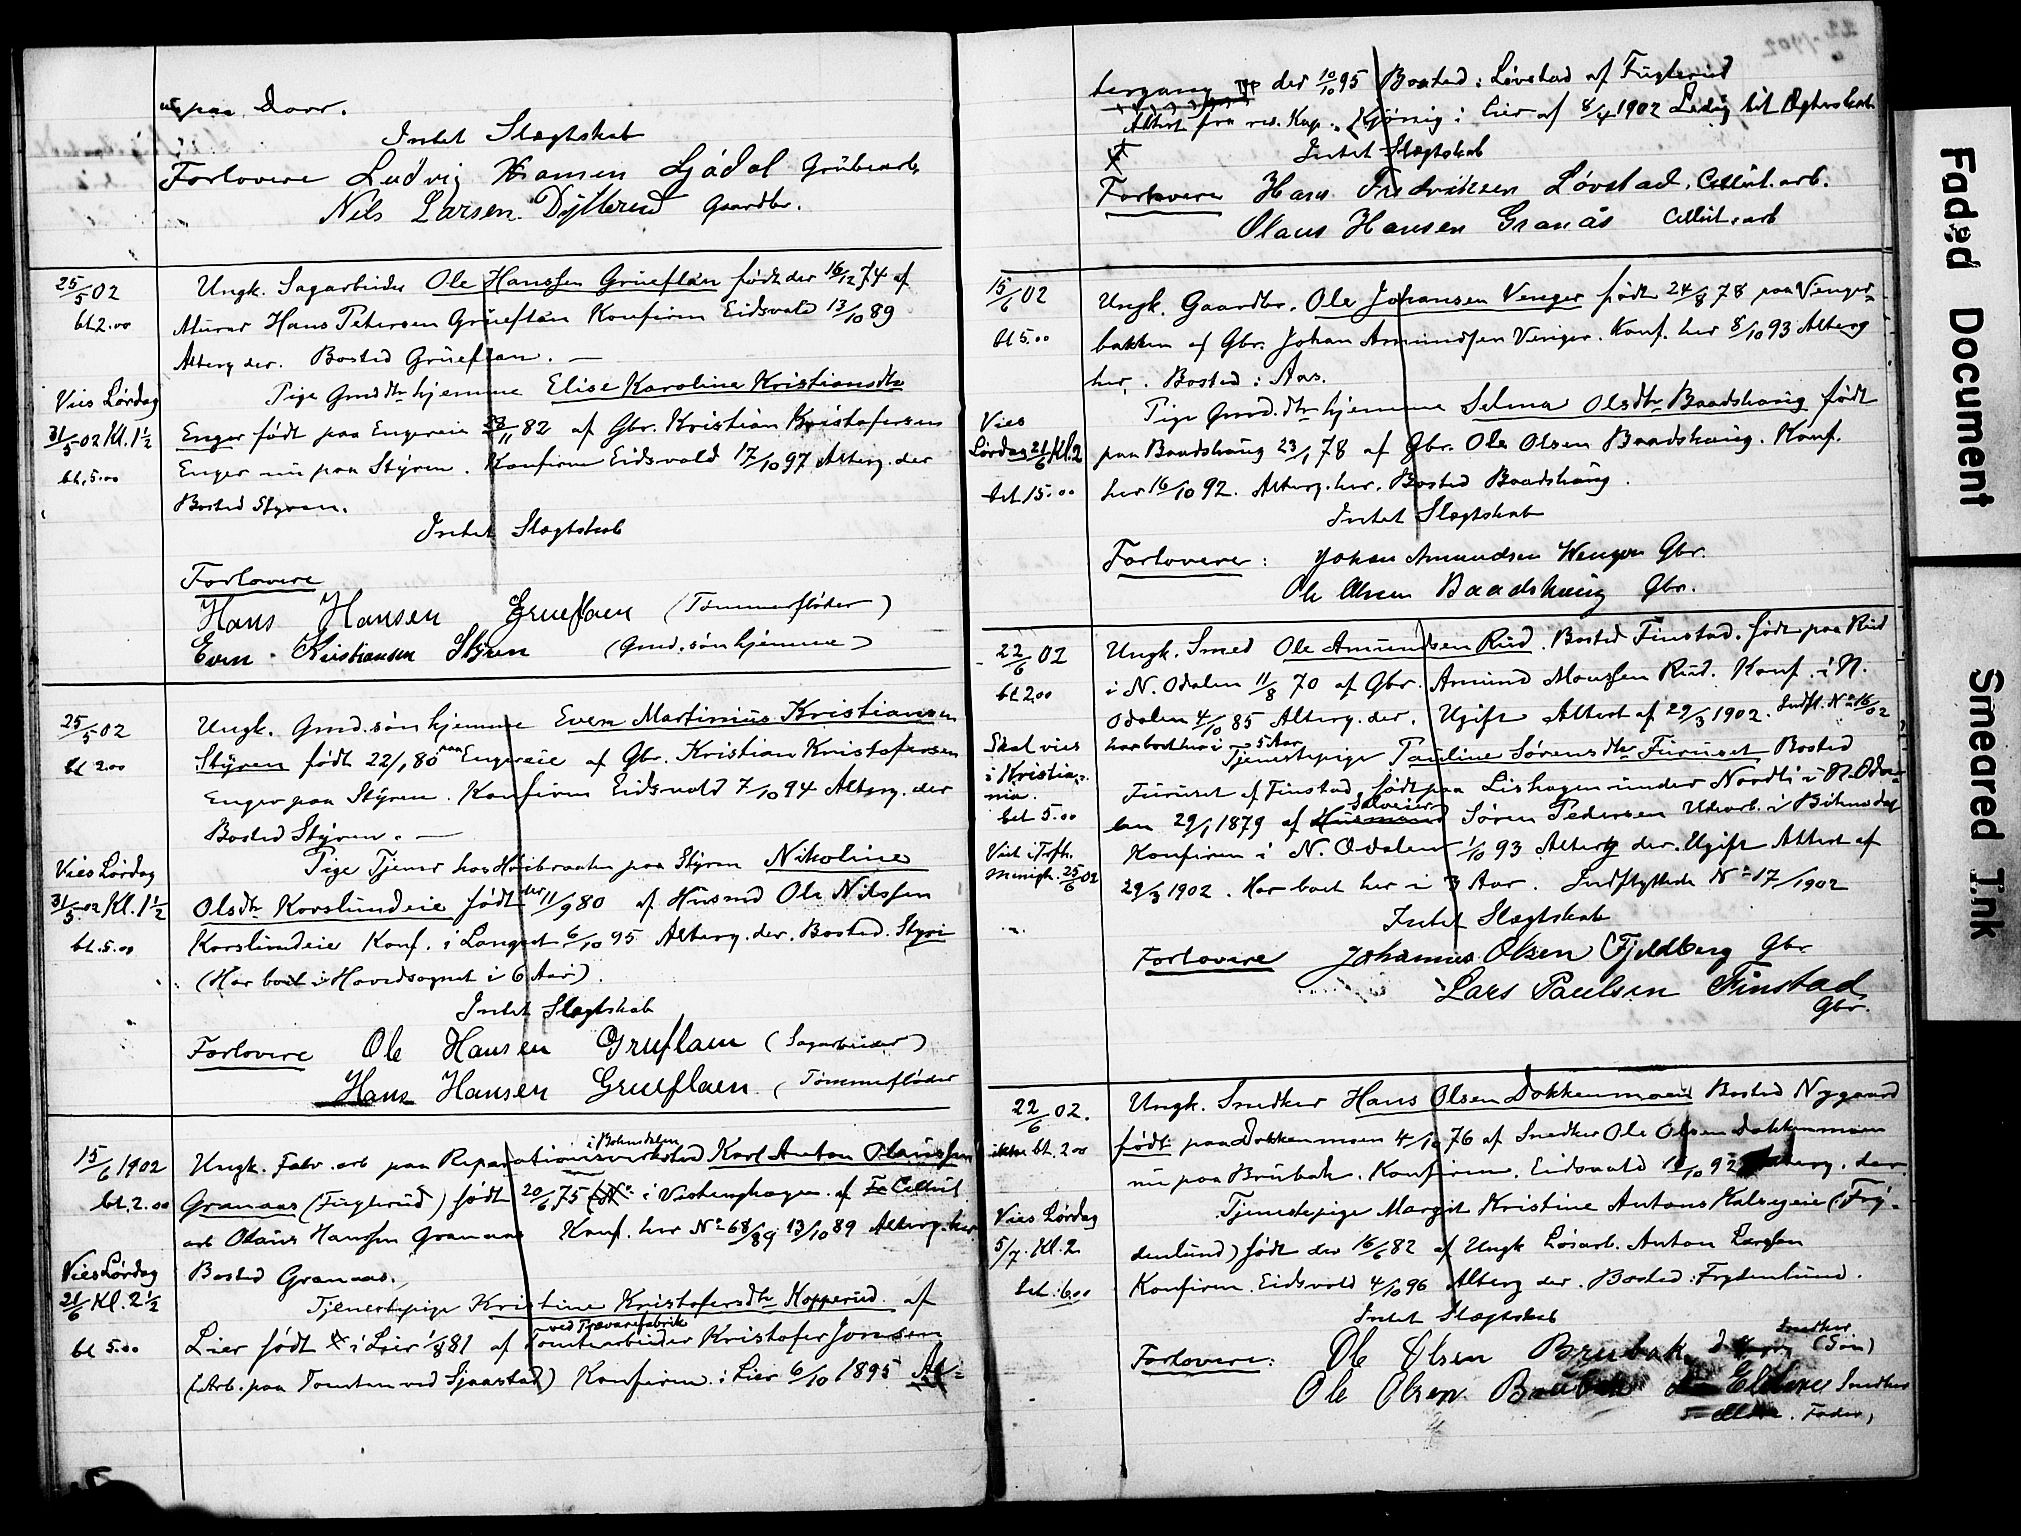 paa Daar.
Intet Slægtskab
Forlovere Ludvig Hansen Ljødal Grubearb.
Nils Larsen Dytterud Gaardbr.
25/5 02 Ungk. Sagarbeider Ole Hanssen Grueflan født der 16/12 74 af
bt. 2.00 Murer Hans Petersen Grueflan Konfirm Eidsvold 13/10 89
Alterg. der. Bosted Grueflan. —
Vies Lørdag Pige Gmd dtr hjemme Elise Karoline Kristiansdtr
31/5 02 Kl. 1½ Enger født paa Engereie 22/11 82 af Gbr. Kristian Kristofersen
bt. 5.00 Enger nu paa Styren. Konfirm Eidsvold 17/10 97 Alterg. der
Bosted Styren.
Intet Slægtskab
Forlovere
Hans Hansen Grueflaen (Tømmerfløder)
Even Kristiansen Styren (Gmd. søn hjemme)
25/5 02 Ungk. Gmd. søn hjemme Even Martinius Kristiansen
bt 2.00 Styren født 22/1 80 paa Engereie af Gbr. Kristian Kristofersen
Enger paa Styren. Konfirm Eidsvold 7/10 94 Alterg. der
Bosted Styren. —
Vies Lørdag Pige Tjener hos Høibraaten paa Styren Nikoline
31/5 02 Kl. 1½ Olsdtr Korslundeie født der 11/9 80 af Husmd Ole Nilssen
bt. 5.00 Korslundeie Konf. i Langset 6/10 95 Alterg. der. Bosted. Styri
(Har boet i Hovedsognet i 6 Aar).
Intet Slægtskab
Forlovere Ole Hansen Gruflaen (Sagarbeider)
Hans Hansen Grueflaen (Tømmerfløder
15/6 1902 Ungk. Fabr. arb paa Reparationsverksted i Bøhnsdalen Karl Anton Olaussen
bt. 2.00 Granaas (Fuglerud) født 20/6 75 i Vestenghagen af Cellul.
arb Olaus Hanssen Granaas Konf. her No 68/89 13/10 89 Alterg. her
Vies Lørdag Bosted Granaas.
21/6 Kl. 2½ Tjenestepige Kristine Kristofersdtr Kopperud af
bt 5.00 Lier født i Lier 1/8 81 af Tomtearbeider ved Trævarefabrik Kristofer Jonsen
(Arb. paa Tomten ved Sjaastad) Konfirm. i Lier 6/10 1895 Al-
tergang der 10/10 95 Bosted: Løvstad af Fuglerud
Attest fra res. Kap. i Lier af 8/4 1902 Ledig til Ægteskab
Intet Slægtskab
Forlovere Hans Fredriksen Løvstad, Cellul. arb.
Olaus Hansen Granås Cellul. arb
15/6 02 Ungk. Gaardbr. Ole Johansen Venger født 24/8 78 paa Venger-
bt 5.00 bakken af Gbr. Johan Amundsen Venger. Konf. her 8/10 93 Alterg
her. Bosted: Aas.
Vies Pige Gmd. dtr hjemme Selma Olsdtr Baadshaug født
Lørdag 21/6 Kl. 2 paa Baadshaug 23/1 78 af Gbr. Ole Olsen Baadshaug. Konf.
bet 15.00 her 16/10 92. Alterg. her. Bosted Baadshaug.
Intet Slægtskab
Forlovere: Johan Amundsen Wenger Gbr.
Ole Olsen Baadshaug Gbr.
22/6 02 Ungk. Smed Ole Amundsen Rud. Bosted Finstad. født paa Rud
bt 2.00 i N. Odalen 11/8 70 af Gbr. Amund Monssen Rud. Konf. i N.
Odalen 4/10 85 Alterg. der. Ugift Attest af 29/3 1902. Indfl. No 16/02
har boet her i 5 Aar
Skal vies Tjenestepige Pauline Sørensdtr Furuset Bosted
i Kristia- Furuset af Finstad, født paa Lishagen under Nordli i N. Oda-
nia. len 29/1 1879 af Husmand Selveier Søren Pedersen Udearb. i Bøhnsdal
bet 5.00 Konfirm i N. Odalen 1/10 93 Alterg der. Ugift Attest af
Viet i Trfk. 29/3 1902. Har boet her i 3 Aar. Indflyttede No 17/1902
Menigh. 25/6 02
Intet Slægtskab
Forlovere Johannes Olsen Fjeldberg Gbr
Lars Paulsen Finstad
Gbr.
22/6 02. Ungk. Snedker Hans Olsen Dokkenmoen Bosted Nygaard
ikke bt. 2.00 født paa Dokkenmoen 4/10 76 af Snedker Ole Olsen Dokkenmoen
nu paa Brubak. Konfirm. Eidsvold /10 92 Alterg. der
Vies Lørdag Tjenestepige Margit Kristine Antons Halseieie (Fry-
5/7. Kl. 2 denlund) født der 16/6 82 af Ungk Løsarb. Anton Larssen
bet. 6.00 Konfirm. Eidsvold 4/10 96 Alterg der. Bosted: Frydenlund.
Intet Slægtskab
Forlovere: Ole Olsen Brubak d. yngre Snedker (Søn)
Ole Olsen Brubak d. Eldre Snedker
Fader)
Faded Document
Smeared Ink